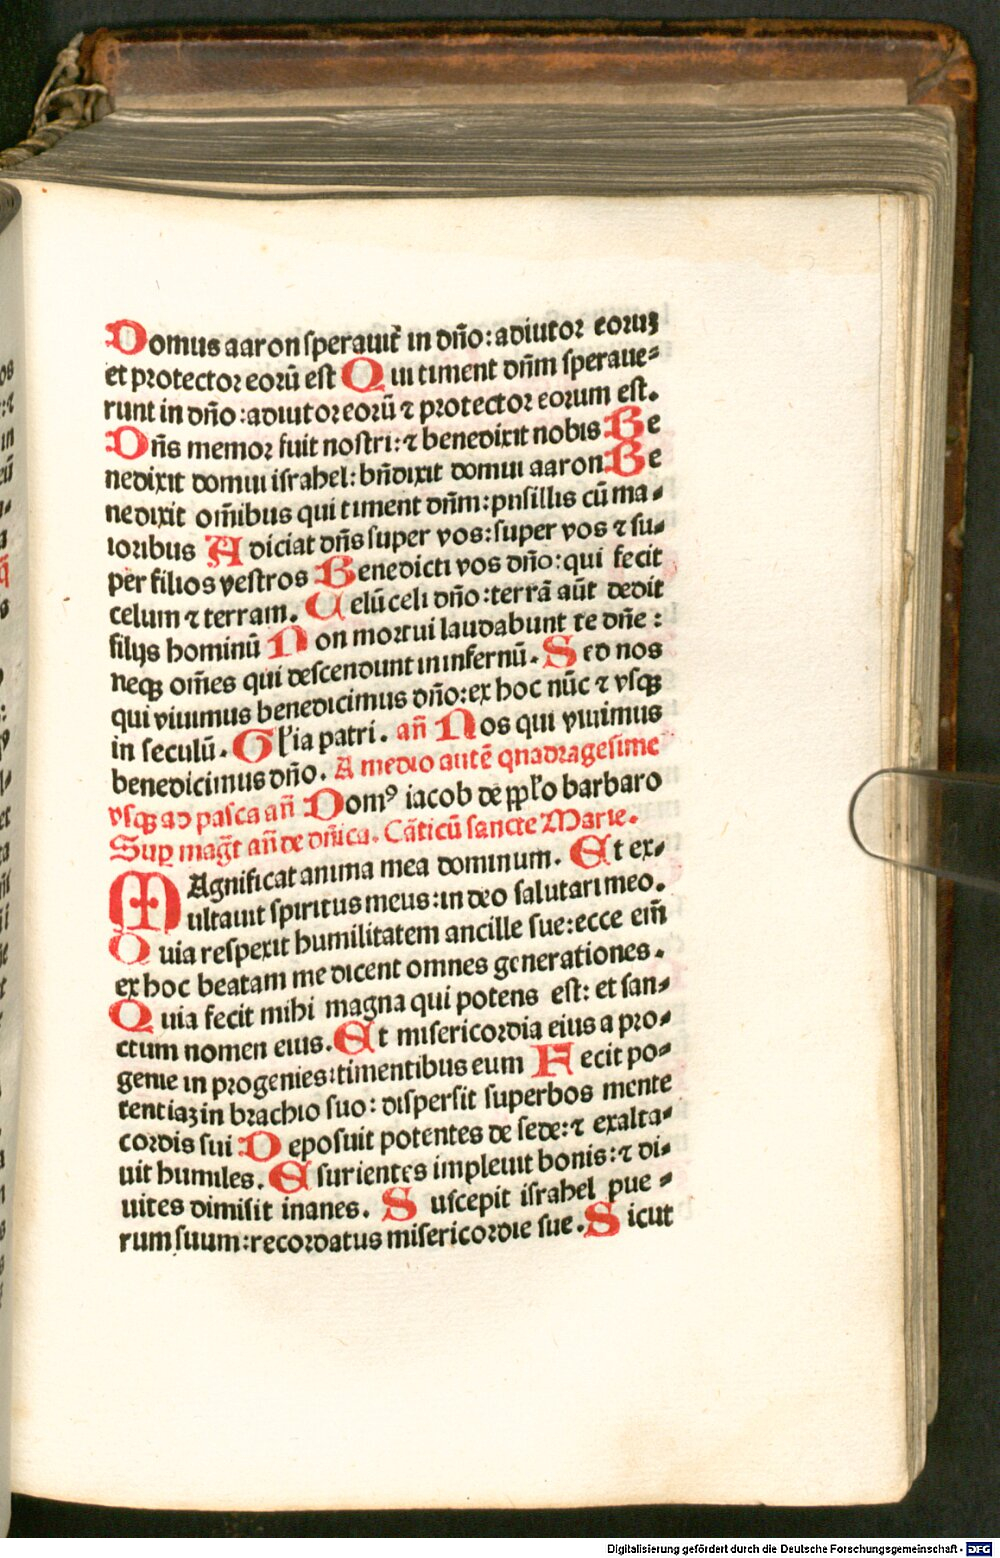 Domus aaron sperauit̄ in dn̄o: adiutor eoruꝫ
et protector eorū est Qui timent dn̄m speraue⸗
runt in dn̄o: adiutor eorū ⁊ protector eorum est.
Dn̄s memor fuit nostri: ⁊ benedixit nobis Be
nedixit domui israhel: bn̄dixit domui aaron Be
nedixit om̄ibus qui timent dn̄m: pusillis cū ma⸗
ioribus Adiciat dn̄s super vos: super vos ⁊ su⸗
per filios vestros Benedicti vos dn̄o: qui fecit
celum ⁊ terram. Celū celi dn̄o: terrā aūt dedit
filijs hominū Non mortui laudabunt te dn̄e:
neqꝫ om̄es qui descendunt in infernū. Sed nos
qui viuimus benedicimus dn̄o: ex hoc nūc ⁊ vsqꝫ
in seculū. Gl̄ia patri. an̄ Nos qui viuimus
benedicimus dn̄o. A medio autē quadragesime
vsqꝫ ad pasca an̄ Domꝰ iacob de pp̄lo barbaro
Suꝑ magt̄ an̄ de dn̄ica. Cāticū sancte Marie.
MAgnificat anima mea dominum. Et ex⸗
ultauit spiritus meus: in deo salutari meo.
Quia respexit humilitatem ancille sue: ecce em̄
ex hoc beatam me dicent omnes generationes.
Quia fecit mihi magna qui potens est: et san⸗
ctum nomen eius. Et misericordia eius a pro⸗
genie in progenies: timentibus eum Fecit po⸗
tentiaꝫ in brachio suo: dispersit superbos mente
cordis sui Deposuit potentes de sede: ⁊ exalta⸗
uit humiles. Esurientes impleuit bonis: ⁊ di⸗
uites dimisit inanes. Suscepit israhel pue⸗
rum suum: recordatus misericordie sue. Sicut
Digitalisierung gefördert durch die Deutsche Forschungsgemeinschaft - DFG